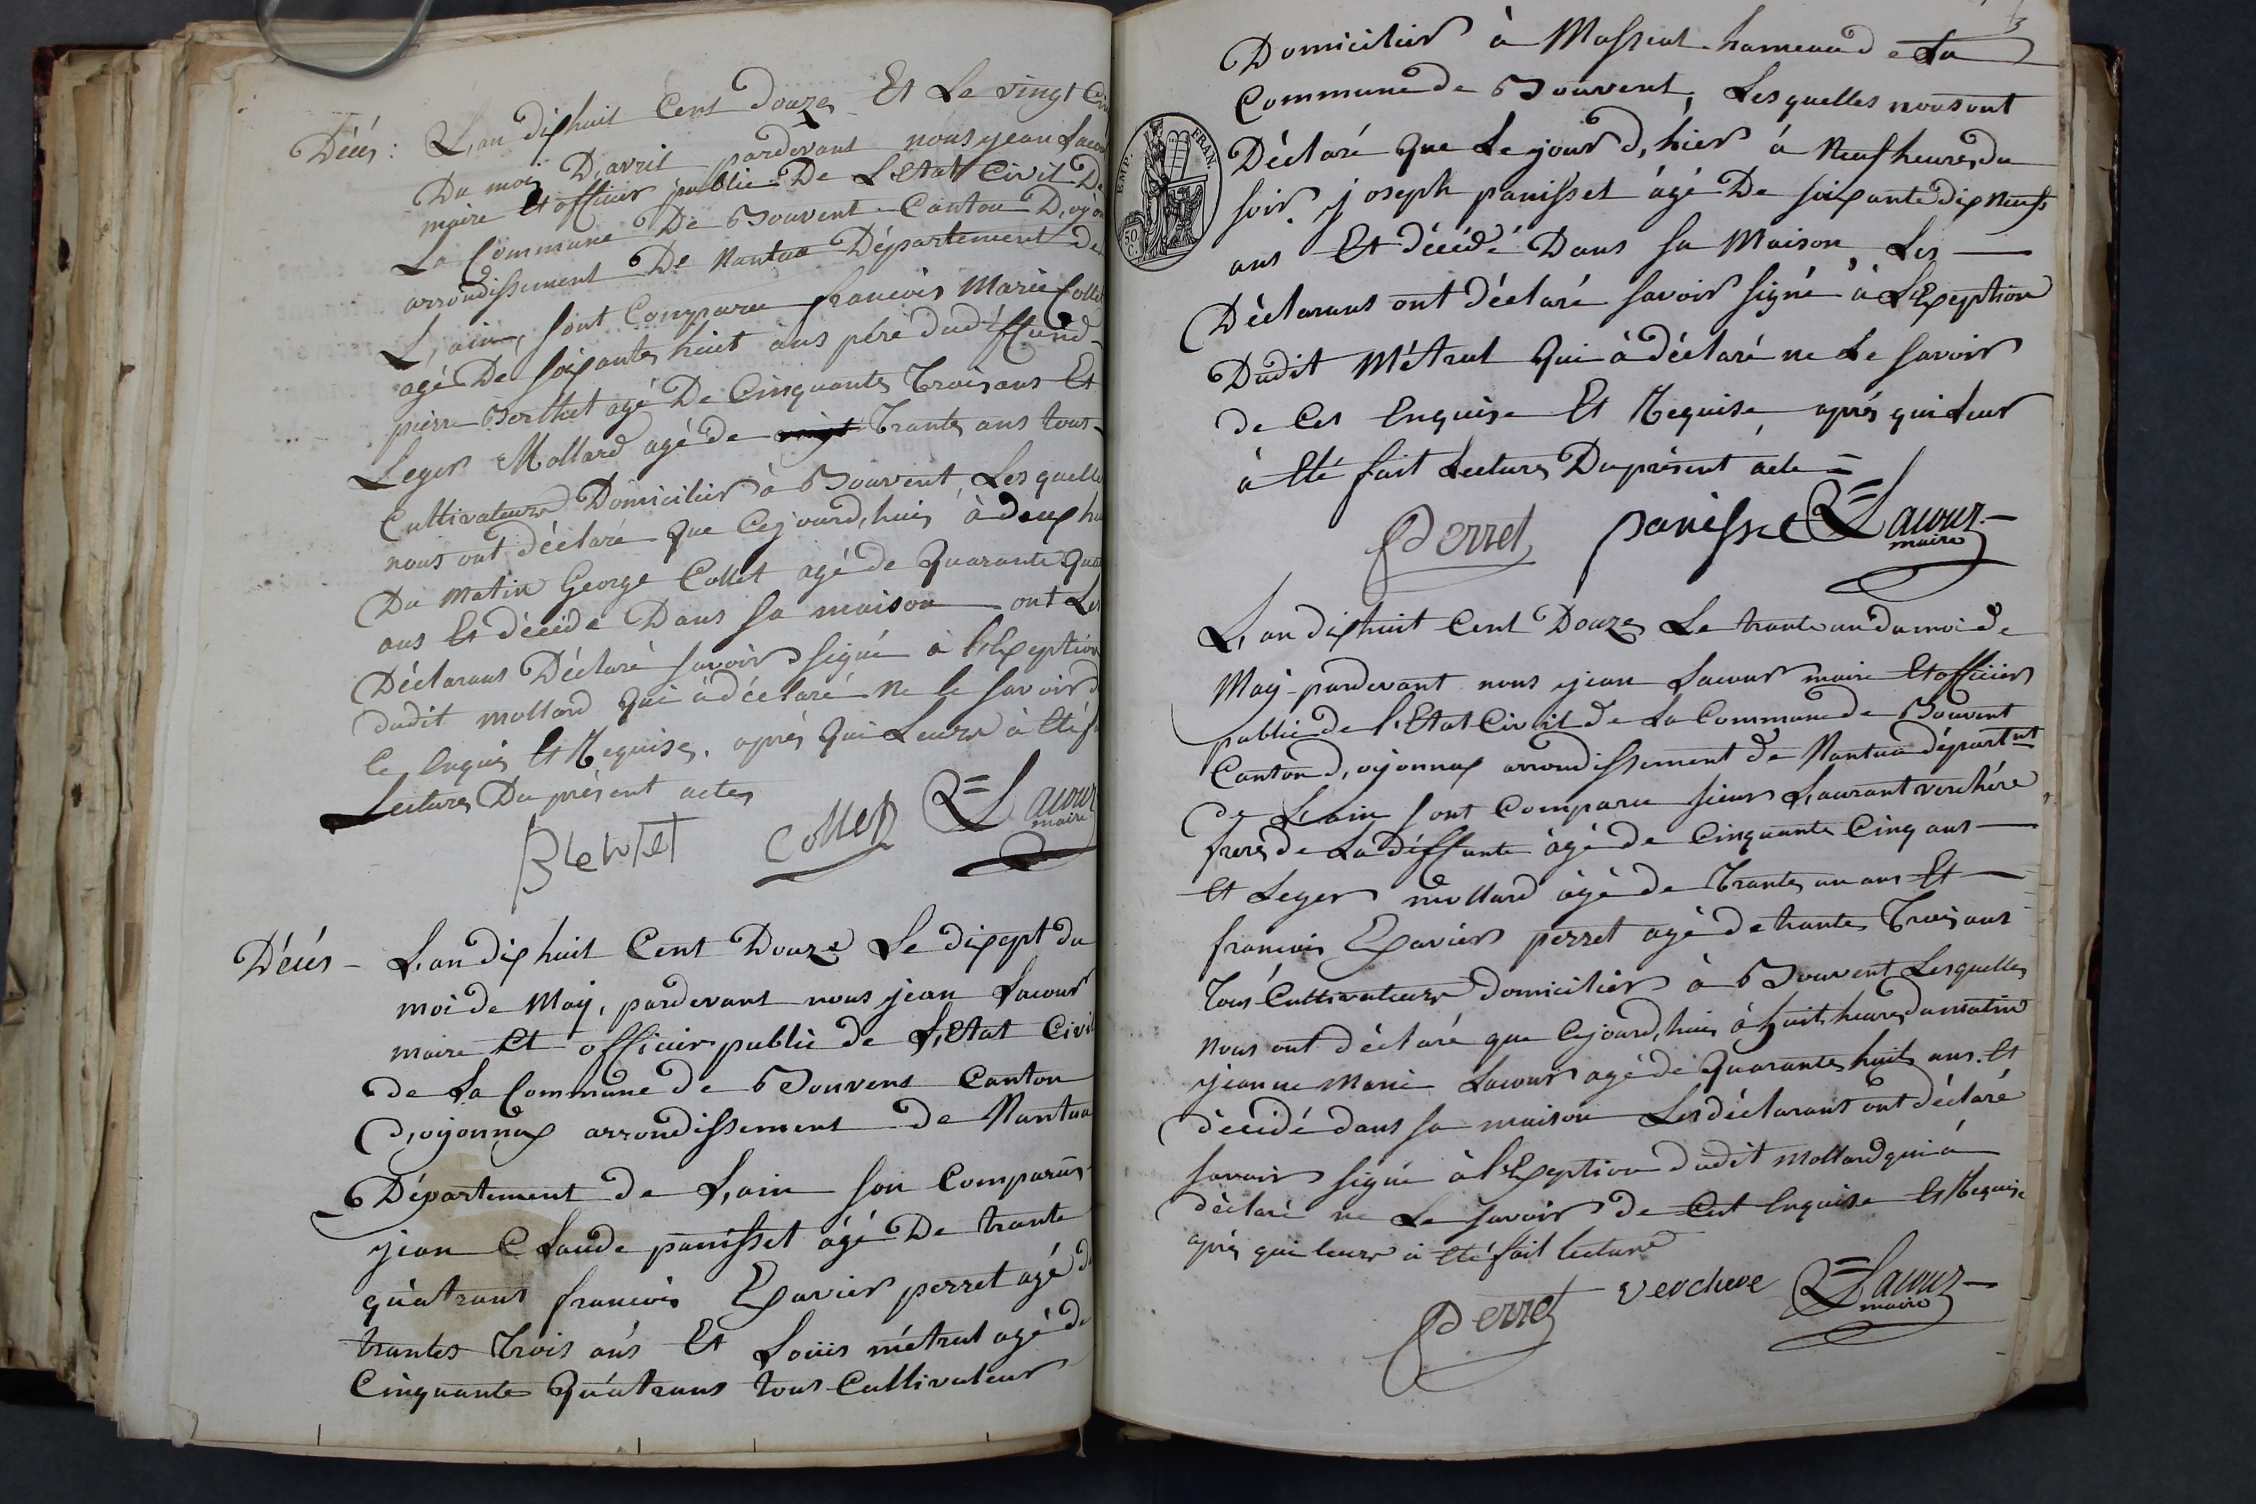 Décés : L,an dixhuit Cent douze Et Le vingt Cin
Du moi D,avril pardevant nous jean Lacou
maire Et officier public De L'Etat Civil De
La Commune De Bouvent Canton D,oyon
arrondissement De Nantua Département de
L,ain, sont Comparu francois Marie Collet
agé De soixantes huit ans pére du déffund
pierre Berthet agé De Cinquantes Trois ans Et
Leger Mollard agé de Trantes ans tous
Cultivateurs Domicilier à Bouvent Lesquelle
nous ont déclaré Que Cejourd,hui à deux he
Du matin George Collet agé de Quarante Qua
ans Et décédé Dans sa maison ont Les
Déclarans Déclaré savoir signé à l'Exeption
dudit mollard Qui à déclaré Ne le savoir d
Ce Enquis Et Requise, après Qui Leurs à Eté f
Lectures Du présent actes
Berthet Collet Lacour
maire
Décés - L,an dix huit Cent Douze Le dixsept du
moi de May, pardevant nous jean Lacour
maire Et officier public de L,Etat Civil
de La Commune de Bouvent Canton
d,oyonnax arrondissement de Nantua
Département de L,ain son Comparus
jean Claude panisset âgé De trante
quàtrans francois Exavier perret agé de
trantes Trois ans Et Loüis métral agé de
Cinquante Quàtrans tous Cultivateur
3
Domicilier à Massiat hameau de La
Commune de Bouvent, Lesquelles nous ont
Déclaré Que Le jour d,hier à Neuf heures du
soir joseph panisset âgé De soixante dix Neufs
ans Et décédé Dans sa Maison, Les
Déclarans ont déclaré savoir signé à L'Exeption
Dudit Métral Qui à déclaré ne Le savoir
de Ces Enquise Et Requise, après qui Leur
à Eté fait Lectures Du présent acte =
EMP. FRAN.
50 C.
Perret panisset Lacour
maire
L,an dixhuit Cent Douze Le trante un du moi de
May pardevant nous jean Lacour maire Et officier
public de l'Etat Civil de La Commune de Bouvent
Canton d,oyonnax arrondissement de Nantua départnt
de L'ain sont Comparu sieur Laurant verchére
frere de La déffunte âgé de Cinquante Cinq ans
Et Leger mollard âgé de Trantes un ans Et
francois Exavier perret agé de trantes Trois ans
Tous Cultivateurs domicilier à Bouvent Lesquelles
Nous ont déclaré que Cejourd,hui à huit heures du matin
jeanne Marie Lacour agé de Quarantes huits ans Et
décédé dans sa maison Les déclarans ont déclaré
savoir signé à l'Exeption dudit mollard qui à
déclaré ne Le savoir de Cet Enquise Et Requise
après qui leurs à Eté fait lecture
Perret verchere Lacour
maire